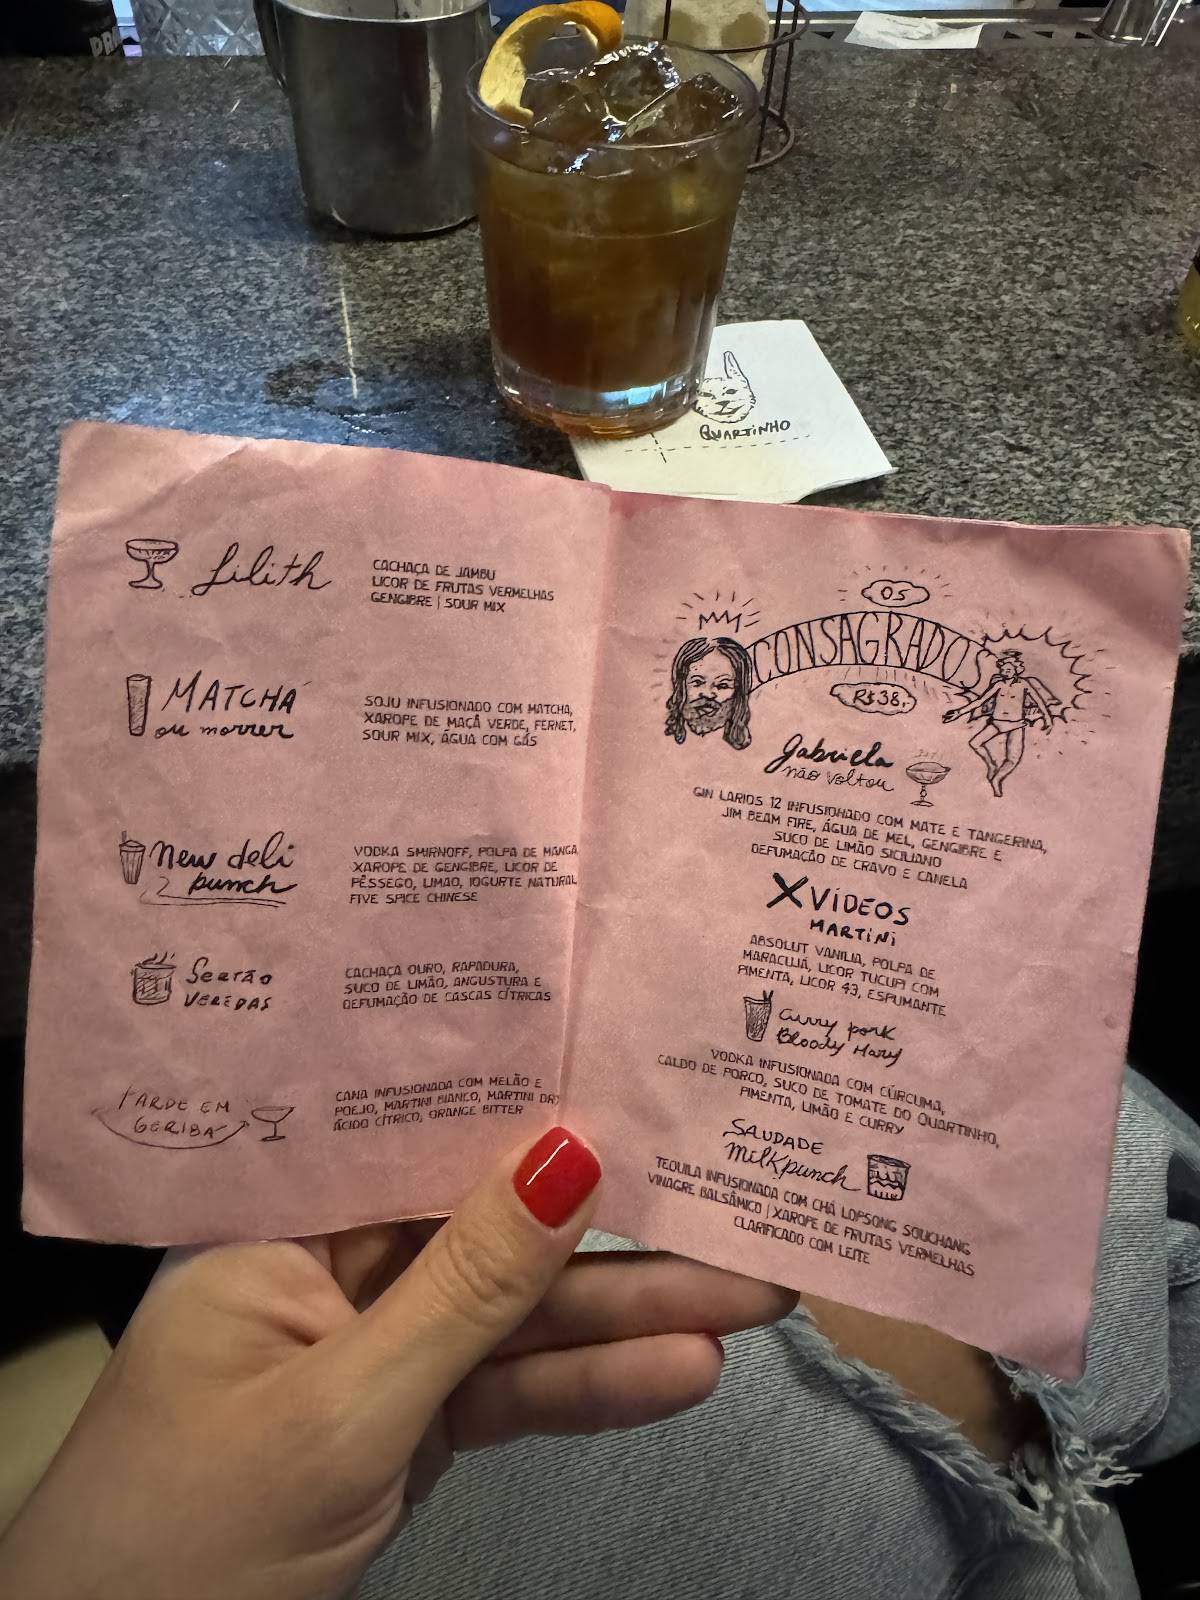 PR
QUARTINHO
Lilith
CACHAÇA DE JAMBU
LICOR DE FRUTAS VERMELHAS
GENGIBRE | SOUR MIX
MATCHÁ
ou morrer
SOJU INFUSIONADO COM MATCHA,
XAROPE DE MAÇÃ VERDE, FERNET,
SOUR MIX, ÁGUA COM GÁS
New deli
2 punch
VODKA SMIRNOFF, POLPA DE MANGA,
XAROPE DE GENGIBRE, LICOR DE
PÊSSEGO, LIMÃO, IOGURTE NATURAL,
FIVE SPICE CHINESE
Sertão
VEREDAS
CACHAÇA OURO, RAPADURA,
SUCO DE LIMÃO, ANGUSTURA E
DEFUMAÇÃO DE CASCAS CÍTRICAS
TARDE EM
GERIBÁ
CANA INFUSIONADA COM MELÃO E
POEJO, MARTINI BIANCO, MARTINI DRY
ÁCIDO CÍTRICO, ORANGE BITTER
OS
CONSAGRADOS
R$ 38,-
Gabriela
não voltou
GIN LARIOS 12 INFUSIONADO COM MATE E TANGERINA,
JIM BEAM FIRE, ÁGUA DE MEL, GENGIBRE E
SUCO DE LIMÃO SICILIANO
DEFUMAÇÃO DE CRAVO E CANELA
XVÍDEOS
MARTINI
ABSOLUT VANILIA, POLPA DE
MARACUJÁ, LICOR TUCUPI COM
PIMENTA, LICOR 43, ESPUMANTE
Curry pork
Bloody Mary
VODKA INFUSIONADA COM CÚRCUMA,
CALDO DE PORCO, SUCO DE TOMATE DO QUARTINHO,
PIMENTA, LIMÃO E CURRY
SAUDADE
Milkpunch
TEQUILA INFUSIONADA COM CHÁ LOPSONG SOUCHANG
VINAGRE BALSÂMICO | XAROPE DE FRUTAS VERMELHAS
CLARIFICADO COM LEITE